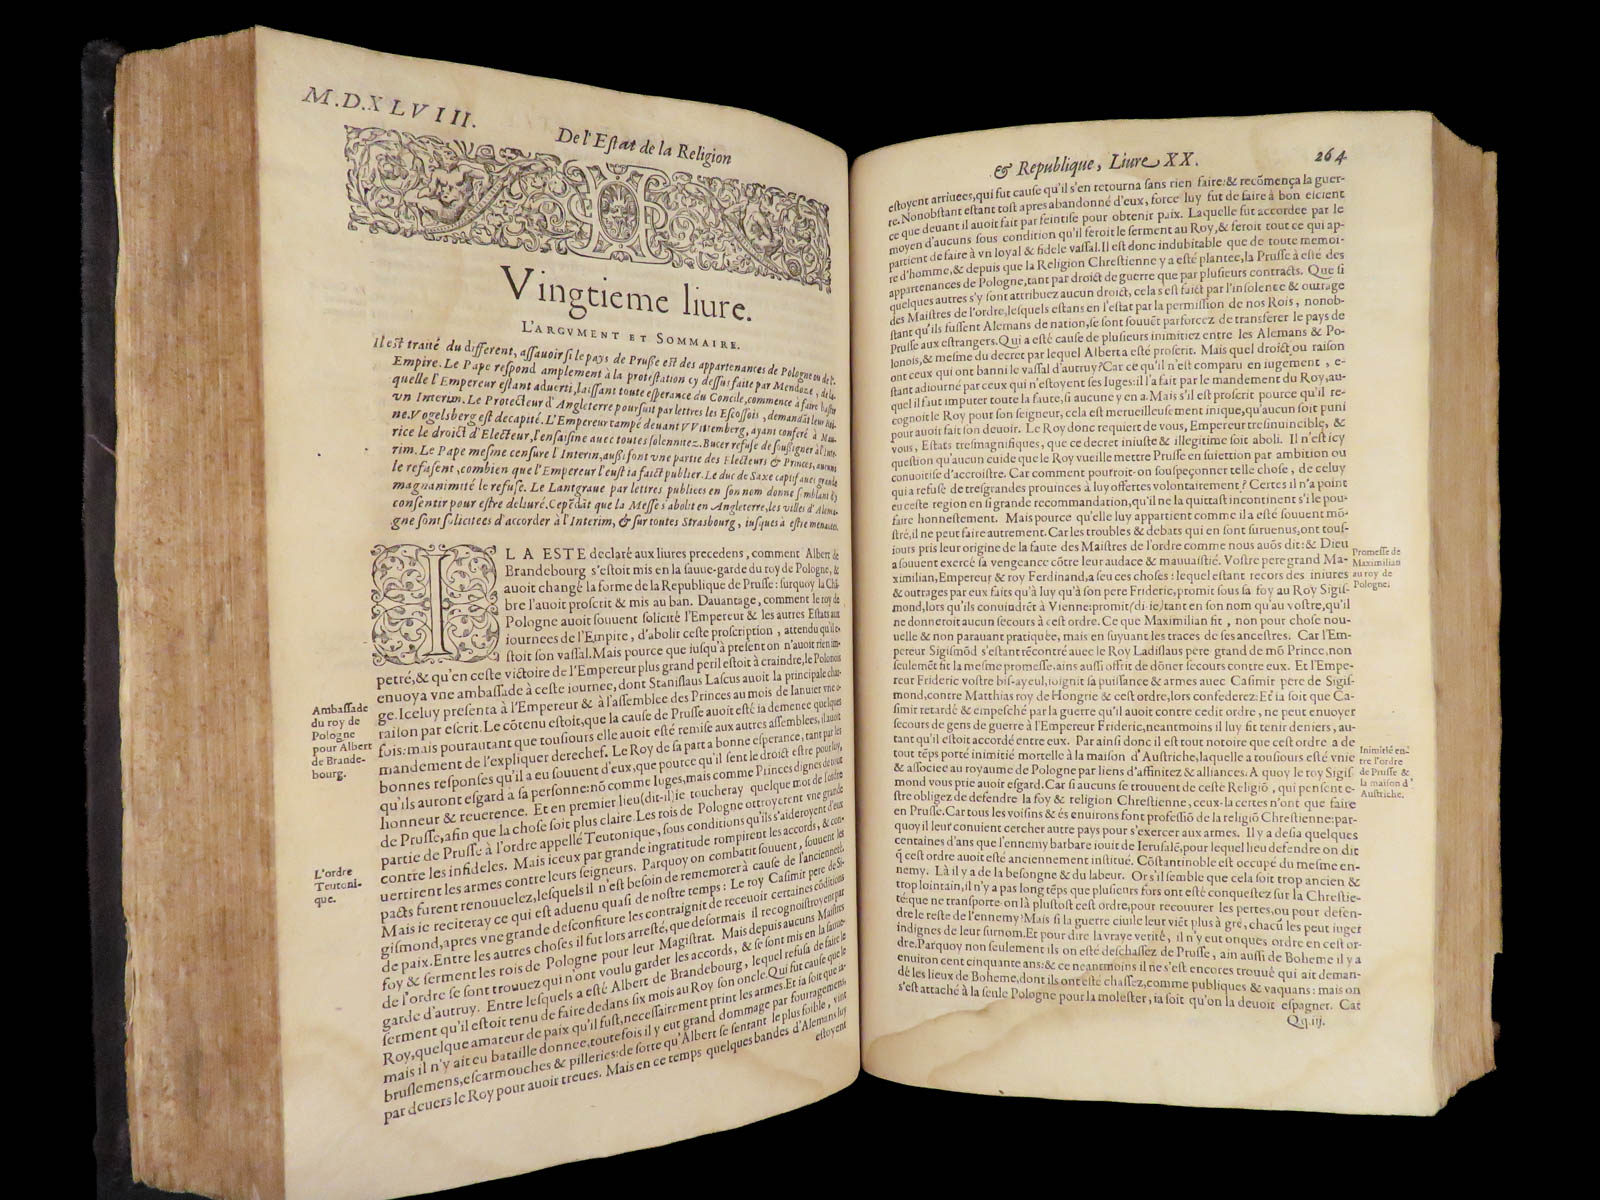 M.D.XLVIII.
De l'Eſtat de la Religion
Vingtieme liure.
L'ARGVMENT ET SOMMAIRE.
Il eſt traité du different, aſſauoir ſi le pays de Pruſſe eſt des appartenances de Pologne ou de l'
Empire. Le Pape reſpond amplement à la proteſtation cy deſſus faite par Mendoze, de la-
quelle l'Empereur eſtant aduerti, laiſſant toute eſperance du Concile, commence à faire baſtir
vn Interim. Le Protecteur d'Angleterre pourſuit par lettres les Eſcoſſois, demandāt leur Roi-
ne. Vogelsberg eſt decapité. L'Empereur campé deuant VVitemberg, ayant conferé à Mau-
rice le droict d'Electeur, l'enſaiſine auec toutes ſolennitez. Bucer refuſe de ſouſigner à l'Inte-
rim. Le Pape meſme cenſure l'Interim, auſſi font vne partie des Electeurs & Princes, aucuns
le refuſent, combien que l'Empereur l'euſt ia faict publier. Le duc de Saxe captif auec grande
magnanimité le refuſe. Le Lantgraue par lettres publiees en ſon nom donne ſemblant d'y
conſentir pour eſtre deliuré. Cepēdāt que la Meſſe s'abolit en Angleterre, les villes d'Alema-
gne ſont ſolicitees d'accorder à l'Interim, & ſur toutes Strasbourg, iuſques à eſtre menacees.
IL A ESTE declaré aux liures precedens, comment Albert de
Brandebourg s'eſtoit mis en la ſauue-garde du roy de Pologne, &
auoit changé la forme de la Republique de Pruſſe: ſurquoy la Chā-
bre l'auoit proſcrit & mis au ban. Dauantage, comment le roy de
Pologne auoit ſouuent ſolicité l'Empereur & les autres Eſtats aux
iournees de l'Empire, d'abolir ceſte proſcription, attendu qu'il e-
ſtoit ſon vaſſal. Mais pource que iuſqu'à preſent on n'auoit rien im-
petré, & qu'en ceſte victoire de l'Empereur plus grand peril eſtoit à craindre, le Polonois
enuoya vne ambaſſade à ceſte iournee, dont Staniſlaus Laſcus auoit la principale char-
ge. Iceluy preſenta à l'Empereur & à l'aſſemblee des Princes au mois de Ianuier vne o-
raiſon par eſcrit. Le cōtenu eſtoit, que la cauſe de Pruſſe auoit eſté ia demenee quelques
fois: mais pourautant que touſiours elle auoit eſté remiſe aux autres aſſemblees, il auoit
mandement de l'expliquer derechef. Le Roy de ſa part a bonne eſperance, tant par les
bonnes reſponſes qu'il a eu ſouuent d'eux, que pource qu'il ſent le droict eſtre pour luy,
qu'ils auront eſgard a ſa perſonne: nō comme Iuges, mais comme Princes dignes de tout
honneur & reuerence. Et en premier lieu (dit-il) ie toucheray quelque mot de l'ordre
de Pruſſe, afin que la choſe ſoit plus claire. Les rois de Pologne ottroyerent vne grande
partie de Pruſſe à l'ordre appellé Teutonique, ſous conditions qu'ils s'aideroyent d'eux
contre les infideles. Mais iceux par grande ingratitude rompirent les accords, & con-
uertirent les armes contre leurs ſeigneurs. Parquoy on combatit ſouuent, ſouuent les
pacts furent renouuelez, leſquels il n'eſt beſoin de rememorer à cauſe de l'ancienneté.
Mais ie reciteray ce qui eſt aduenu quaſi de noſtre temps: Le roy Caſimir pere de Si-
giſmond, apres vne grande deſconfiture les contraignit de receuoir certaines cōditions
de paix. Entre les autres choſes il fut lors arreſté, que deſormais il recognoiſtroyent par
foy & ſerment les rois de Pologne pour leur Magiſtrat. Mais depuis aucuns Maiſtres
de l'ordre ſe ſont trouuez qui n'ont voulu garder les accords, & ſe ſont mis en la ſauue-
garde d'autruy. Entre leſquels a eſté Albert de Brandebourg, lequel refuſa de faire le
ſerment qu'il eſtoit tenu de faire dedans ſix mois au Roy ſon oncle. Qui fut cauſe que le
Roy, quelque amateur de paix qu'il fuſt, neceſſairement print les armes. Et ia ſoit que ia-
mais il n'y ait eu bataille donnee, toutefois il y eut grand dommage par fourragemens,
bruſlemens, eſcarmouches & pilleries: de ſorte qu'Albert ſe ſentant le plus foible, vint
par deuers le Roy pour auoir treues. Mais en ce temps quelques bandes d'Alemans luy
eſtoyent
Ambaſſade
du roy de
Pologne
pour Albert
de Brande-
bourg.
L'ordre
Teutoni-
que.
& Republique, Liure XX. 264
eſtoyent arriuees, qui fut cauſe qu'il s'en retourna ſans rien faire: & recōmença la guer-
re. Nonobſtant eſtant toſt apres abandonné d'eux, force luy fut de faire à bon eſcient
ce que deuant il auoit fait par feintiſe pour obtenir paix. Laquelle fut accordee par le
moyen d'aucuns ſous condition qu'il feroit le ſerment au Roy, & feroit tout ce qui ap-
partient de faire à vn loyal & fidele vaſſal. Il eſt donc indubitable que de toute memoi-
re d'homme, & depuis que la Religion Chreſtienne y a eſté plantee, la Pruſſe à eſté des
appartenances de Pologne, tant par droict de guerre que par pluſieurs contracts. Que ſi
quelques autres s'y ſont attribuez aucun droict, cela s'eſt faict par l'inſolence & outrage
des Maiſtres de l'ordre, leſquels eſtans en l'eſtat par la permiſſion de nos Rois, nonob-
ſtant qu'ils fuſſent Alemans de nation, ſe ſont ſouuēt parforcez de transferer le pays de
Pruſſe aux eſtrangers. Qui a eſté cauſe de pluſieurs inimitiez entre les Alemans & Po-
lonois, & meſme du decret par lequel Albert a eſté proſcrit. Mais quel droict ou raiſon
ont ceux qui ont banni le vaſſal d'autruy? Car ce qu'il n'eſt comparu en iugement, e-
ſtant adiourné par ceux qui n'eſtoyent ſes Iuges: il l'a fait par le mandement du Roy, au-
quel il faut imputer toute la faute, ſi aucune y en a. Mais s'il eſt proſcrit pource qu'il re-
cognoit le Roy pour ſon ſeigneur, cela eſt merueilleuſement inique, qu'aucun ſoit puni
pour auoit fait ſon deuoir. Le Roy donc requiert de vous, Empereur treſinuincible, &
vous, Eſtats treſmagnifiques, que ce decret iniuſte & illegitime ſoit aboli. Il n'eſt icy
queſtion qu'aucun cuide que le Roy vueille mettre Pruſſe en ſuiettion par ambition ou
conuoitiſe d'accroiſtre. Car comment pourroit-on ſouſpeçonner telle choſe, de celuy
qui a refuſé de treſgrandes prouinces à luy offertes volontairement? Certes il n'a point
eu ceſte region en ſi grande recommandation, qu'il ne la quittaſt incontinent s'il le pou-
faire honneſtement. Mais pource qu'elle luy appartient comme il a eſté ſouuent mō-
ſtré, il ne peut faire autrement. Car les troubles & debats qui en ſont ſuruenus, ont touſ-
iours pris leur origine de la faute des Maiſtres de l'ordre comme nous auōs dit: & Dieu
a ſouuent exercé ſa vengeance cōtre leur audace & mauuaiſtié. Voſtre pere grand Ma-
ximilian, Empereur & roy Ferdinand, a ſeu ces choſes: lequel eſtant recors des iniures
& outrages par eux faits qu'à luy qu'à ſon pere Frideric, promit ſous ſa foy au Roy Sigiſ-
mond, lors qu'ils conuindrēt à Vienne: promit (di-ie) tant en ſon nom qu'au voſtre, qu'il
ne donneroit aucun ſecours à ceſt ordre. Ce que Maximilian fit, non pour choſe nou-
uelle & non parauant pratiquée, mais en ſuyuant les traces de ſes anceſtres. Car l'Em-
pereur Sigiſmōd s'eſtant rēcontré auec le Roy Ladiſlaus pere grand de mō Prince, non
ſeulemēt fit la meſme promeſſe, ains auſſi offrit de dōner ſecours contre eux. Et l'Empe-
reur Frideric voſtre biſ-ayeul, ioignit ſa puiſſance & armes auec Caſimir pere de Sigiſ-
mond, contre Matthias roy de Hongrie & ceſt ordre, lors confederez: Et ia ſoit que Ca-
ſimir retardé & empeſché par la guerre qu'il auoit contre cedit ordre, ne peut enuoyer
ſecours de gens de guerre à l'Empereur Frideric, neantmoins il luy fit tenir deniers, au-
tant qu'il eſtoit accordé entre eux. Par ainſi donc il eſt tout notoire que ceſt ordre a de
tout tēps porté inimitié mortelle à la maiſon d'Auſtriche, laquelle a touſiours eſté vnie
& aſſociee au royaume de Pologne par liens d'affinitez & alliances. A quoy le roy Sigiſ
mond vous prie auoir eſgard. Car ſi aucuns ſe trouuent de ceſte Religiō, qui penſent e-
ſtre obligez de defendre la foy & religion Chreſtienne, ceux-la certes n'ont que faire
en Pruſſe. Car tous les voiſins & és enuirons ſont profeſſiō de la religiō Chreſtienne: par-
quoy il leur conuient cercher autre pays pour s'exercer aux armes. Il y a deſia quelques
centaines d'ans que l'ennemy barbare iouit de Ieruſalē, pour lequel lieu defendre on dit
q̄ ceſt ordre auoit eſté anciennement inſtitué. Cōſtantinoble eſt occupé du meſme en-
nemy. Là il y a de la beſongne & du labeur. Or s'il ſemble que cela ſoit trop ancien &
trop lointain, il n'y a pas long tēps que pluſieurs fors ont eſté conqueſtez ſur la Chreſtie-
té: que ne tranſporte-on là pluſtoſt ceſt ordre, pour recouurer les pertes, ou pour defen-
dre le reſte de l'ennemy? Mais ſi la guerre ciuile leur viēt plus à gré, chacū les peut iuger
indignes de leur ſurnom. Et pour dire la vraye verité, il n'y eut onques ordre en ceſt or-
dre. Parquoy non ſeulement ils on eſté deſchaſſez de Pruſſe, ain auſſi de Boheme il y a
enuiron cent cinquante ans: & ce neantmoins il ne s'eſt encores trouué qui ait deman-
dé les lieux de Boheme, dont ils ont eſté chaſſez, comme publiques & vaquans: mais on
s'eſt attaché à la ſeule Pologne pour la moleſter, ia ſoit qu'on la deuoit eſpagner. Cat
Qq.iij.
Promeſſe de
Maximilian
au roy de
Pologne.
Inimitié en-
tre l'ordre
de Pruſſe &
la maiſon d'
Auſtriche.